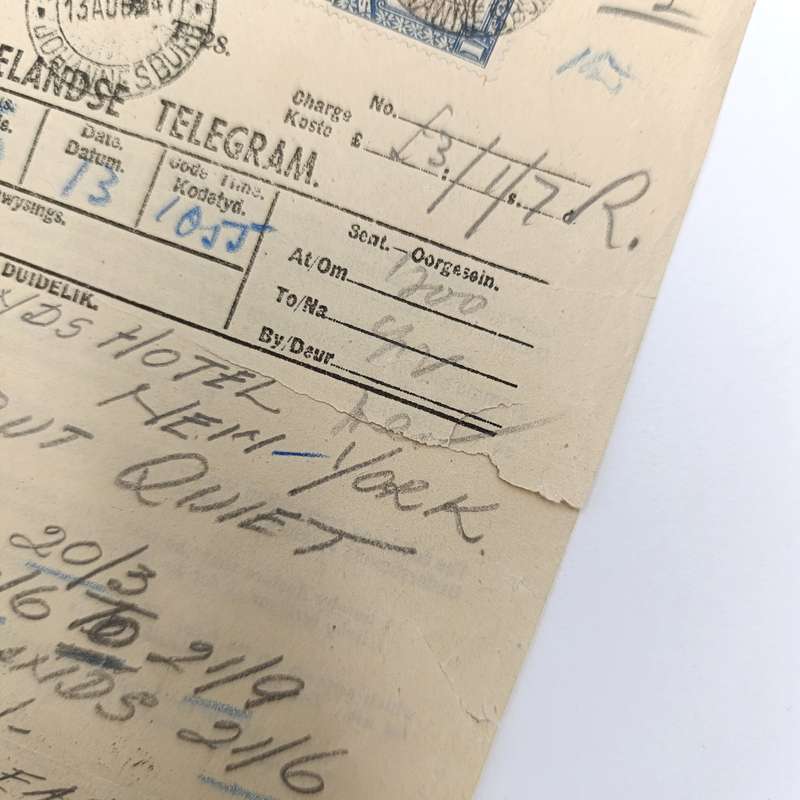 13 AUG 47
JOHANNESBURG
1
ELANDSE TELEGRAM.
Charge
Koste
No.
£ £3/1/7 R.
s. d.
Date.
Datum.
13
Code Time.
Kodetyd.
1055
wysings.
Sent.—Oorgesein.
At/Om 1200
To/Na
By/Deur
DUIDELIK.
YDS HOTEL
NEW-YORK.
QUIET
20/3
/6 TO 21/9
21/6